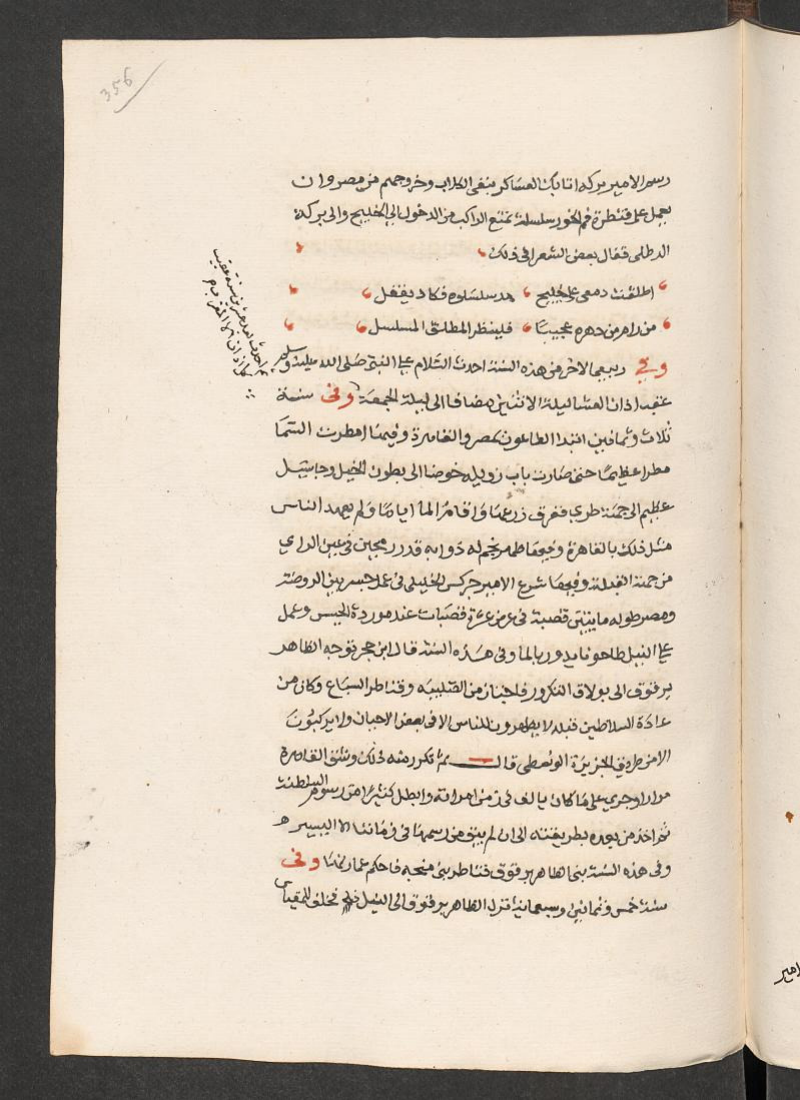 356
رسم الامير بركه اتابك العساكر بنفى الكلاب وخروجهم من مصر وان
يعمل على قنطرة فم الخور سلسلة تمنع المراكب من الدخول الى الخليج والى بركة
الرطلى فقال بعض الشعرا فى ذلك
اطلقت دمعى على خليج مد سلسلوه فكاد يقفل
من رام من دهره عجيبا فلينظر المطلق المسلسل
وفى ربيع الاخر من هذه السنة احدث السلام على النبى صلى الله عليه وسلم
عقب اذان العشا ليلة الاثنين مضافا الى ليلة الجمعة وفى سنة
ثلاث وثمانين ابتدا الطاعون بمصر والقاهرة وفيها امطرت السما
مطرا عظيما حتى صارت باب زويله خوضا الى بطون الخيل وجا سيل
عظيم الى جهة طرى فغرق زرعها واقام الما اياما ولم يعهد الناس
مثل ذلك بالقاهرة وفيها ظهر نجم له ذوابه قدر رمحين فى عين الراى
من جهة القبلة وفيها شرع الامير جركس الخليلى فى عمل جسر بين الروضة
ومصر طوله مايتين قصبة فى عرض عشرة قصبات عند موردة الحبس وعمل
على النيل طاحونا يدور بالما وفى هذه السنة قال ابن حجر توجه الظاهر
برقوق الى بولاق التكرور فاجتاز من الصليبه وقناطر السباع وكان من
عادة السلاطين قبله لا يظهرون للناس الا فى بعض الاحيان ولا يركبون
الا من طريق الجزيرة الوسطى قال ثم تكرر منه ذلك وشق القاهرة
مرارا وجرى على ما كان يالف فى زمن امراته وابطل كثيرا من رسوم السلطنة
ثم اخذ من بعده بطريقته الى ان لم يبق من رسمها فى زماننا الا اليسير
وفى هذه السنة بنى الظاهر برقوق قناطر بنى منجه فاحكم عمارتها وفى
سنة خمس وثمانين وسبعماية نزل الظاهر برقوق الى النيل فخلق المقياس